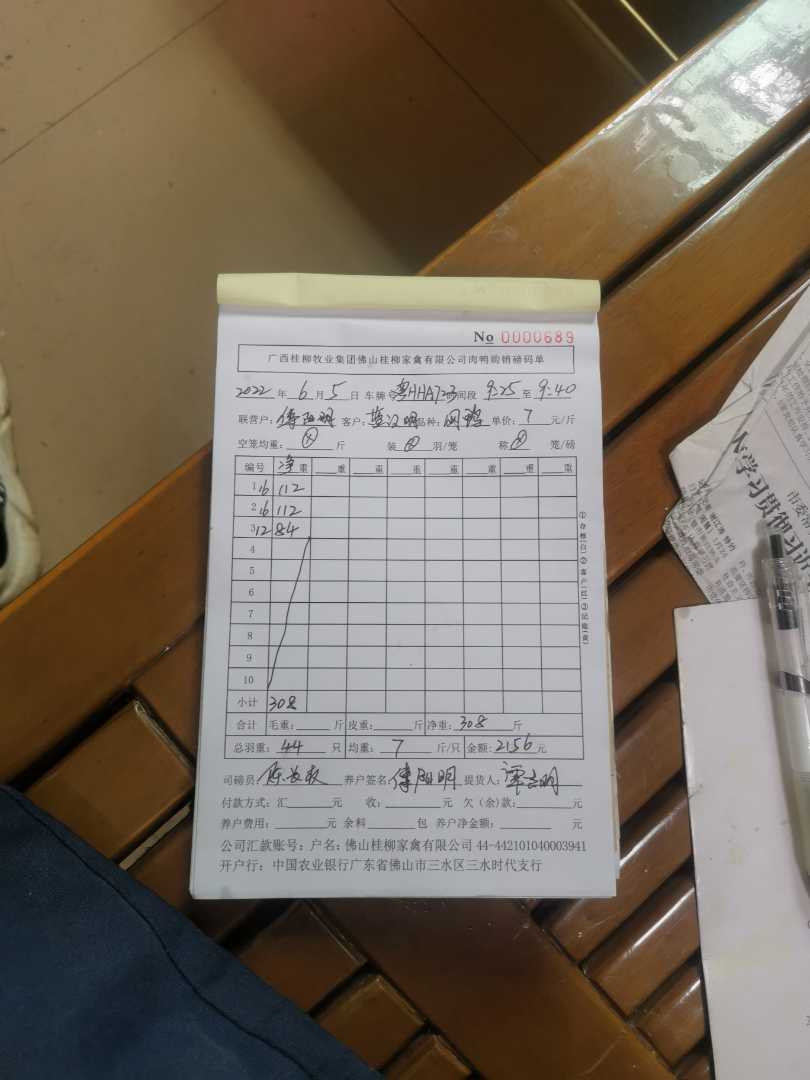 No 0000689
广西桂柳牧业集团佛山桂柳家禽有限公司肉鸭购销磅码单
2022 年 6 月 5 日 车牌号 粤HHA723 时间段 9:25 至 9:40
联营户: 傅阳明 客户: 明 品种: 单价: 7 元/斤
空笼均重: 斤 装 羽/笼 称 笼/磅
编号 净重 重 重 重 重 重 重 重
1 16 112
2 16 112
3 12 84
4
5
6
7
8
9
10
小计 308
合计 毛重: 斤 皮重: 斤 净重: 308 斤
总羽重: 44 只 均重: 7 斤/只 金额: 2156 元
司磅员: 陈 养户签名: 傅阳明 提货人: 谭 明
付款方式: 汇 元 收: 元 欠(余)款: 元
养户费用: 元 余料 包 养户净金额: 元
公司汇款账号: 户名: 佛山桂柳家禽有限公司 44-442101040003941
开户行: 中国农业银行广东省佛山市三水区三水时代支行
①存根(白)②客户(红)③记账(黄)
学习贯彻习
市委